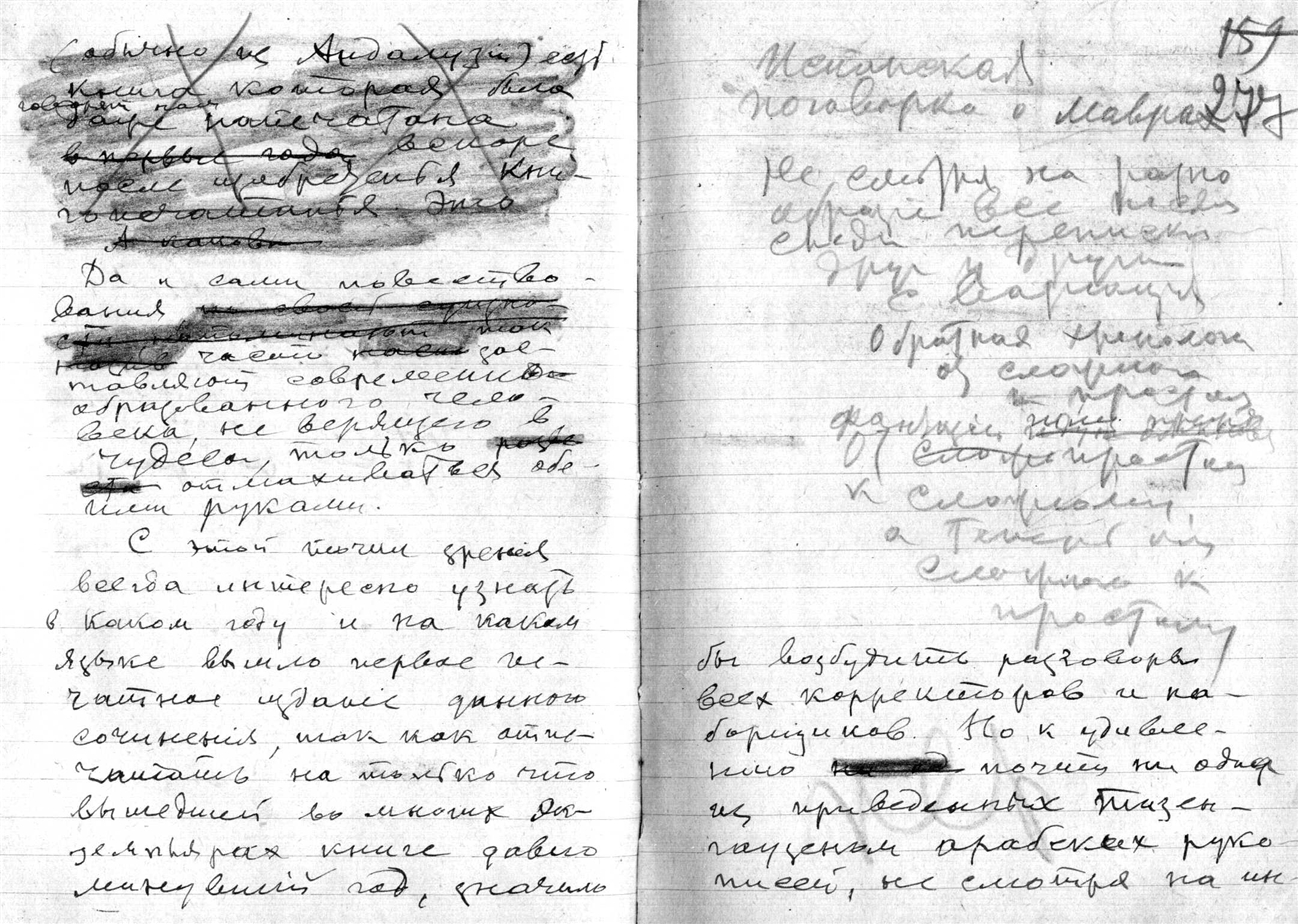 (обычно из Андалузии) есть
книга которая была
говорят нам
даже напечатана
в первые года вскоре
после изобретенья кни-
гопечатанья. Это
А какова
Да и сами повество-
вания
часто зас-
тавляют современно
образованного чело-
века, не верящего в
чудеса, только
отмахиваться обе-
ими руками.
С этой точки зрения
всегда интересно узнать
в каком году и на каком
языке вышло первое пе-
чатное издание данного
сочинения, так как отпе-
чатать на только что
вышедшей во многих эк-
земплярах книге давно
минувший год, значило
159
277
Испанская
поговорка о маврах
Не смотря на разно
образие все
списки переписки
друг у друга
с вариация
Обратная хронология
от сложного
к простому
от простого
к сложному,
а теперь от
сложного к
простому
бы возбудить разговоры
всех корректоров и на-
борщиков. Но к удивле-
нию почти ни одна
из приведенных Тизен-
гаузеном арабских руко-
писей, не смотря на ин-